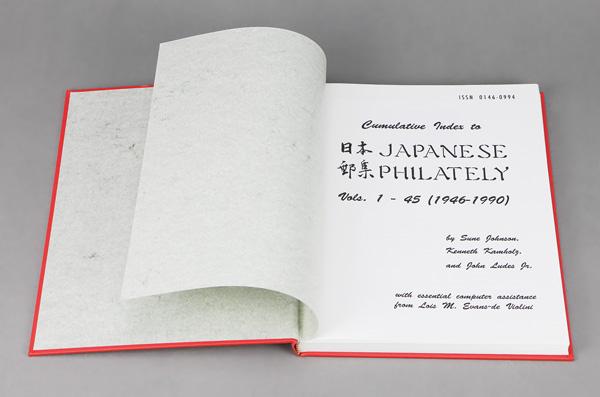 ISSN 0146-0994
Cumulative Index to
日本 JAPANESE
郵集 PHILATELY
Vols. 1 - 45 (1946-1990)
by Sune Johnson,
Kenneth Kamholz,
and John Ludes Jr.
with essential computer assistance
from Lois M. Evans-de Violini